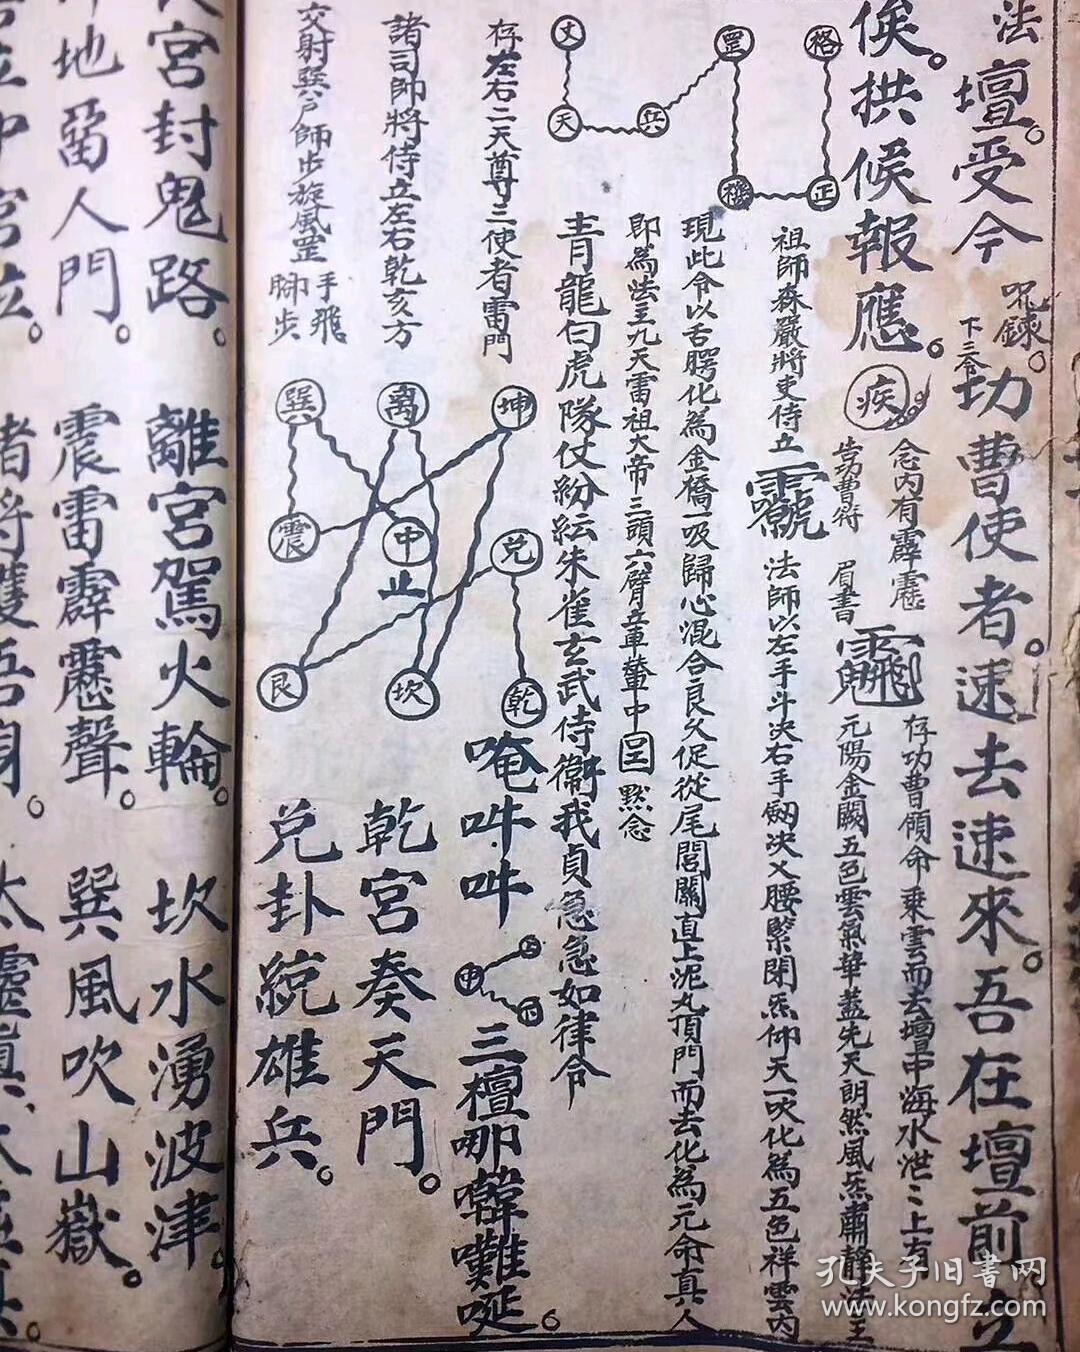 法壇。受今
咒錄。
下三台
功曹使者。速去速來。吾在壇前。立
俟。拱候報應。
疾
念內有霹靂
告功曹符
眉書
存功曹領命乘雲而去壇中海水泄〻上有
元陽金闕五色雲氣華蓋先天朗然風炁肅靜法主
祖師森嚴將吏侍立
法師以左手斗决右手劔决乂腰緊閉炁仰天一吹化為五色祥雲內
現此令以舌腭化為金橋吸歸心混合良久促從尾閭關直上泥丸頂門而去化為元命真人
即為法主九天雷祖大帝三頭六臂立車輦中
默念
青龍白虎隊仗紛紜朱雀玄武侍衛我貞急急如律令
丈
天
兵
罡
機
正
格
存左右二天尊三使者雷門
諸司帥將侍立左右乾亥方
交射巽戶師步旋風罡
手飛
脚步
坤
離
巽
兌
中
止
震
乾
坎
艮
唵吽吽
三檀哪
乾宮奏天門。
兌卦統雄兵。
宮封鬼路。
離宮駕火輪。
坎水湧波津。
地畱人門。
震雷霹靂聲。
巽風吹山嶽。
諸將護吾身。
孔夫子旧書网
www.kongfz.com